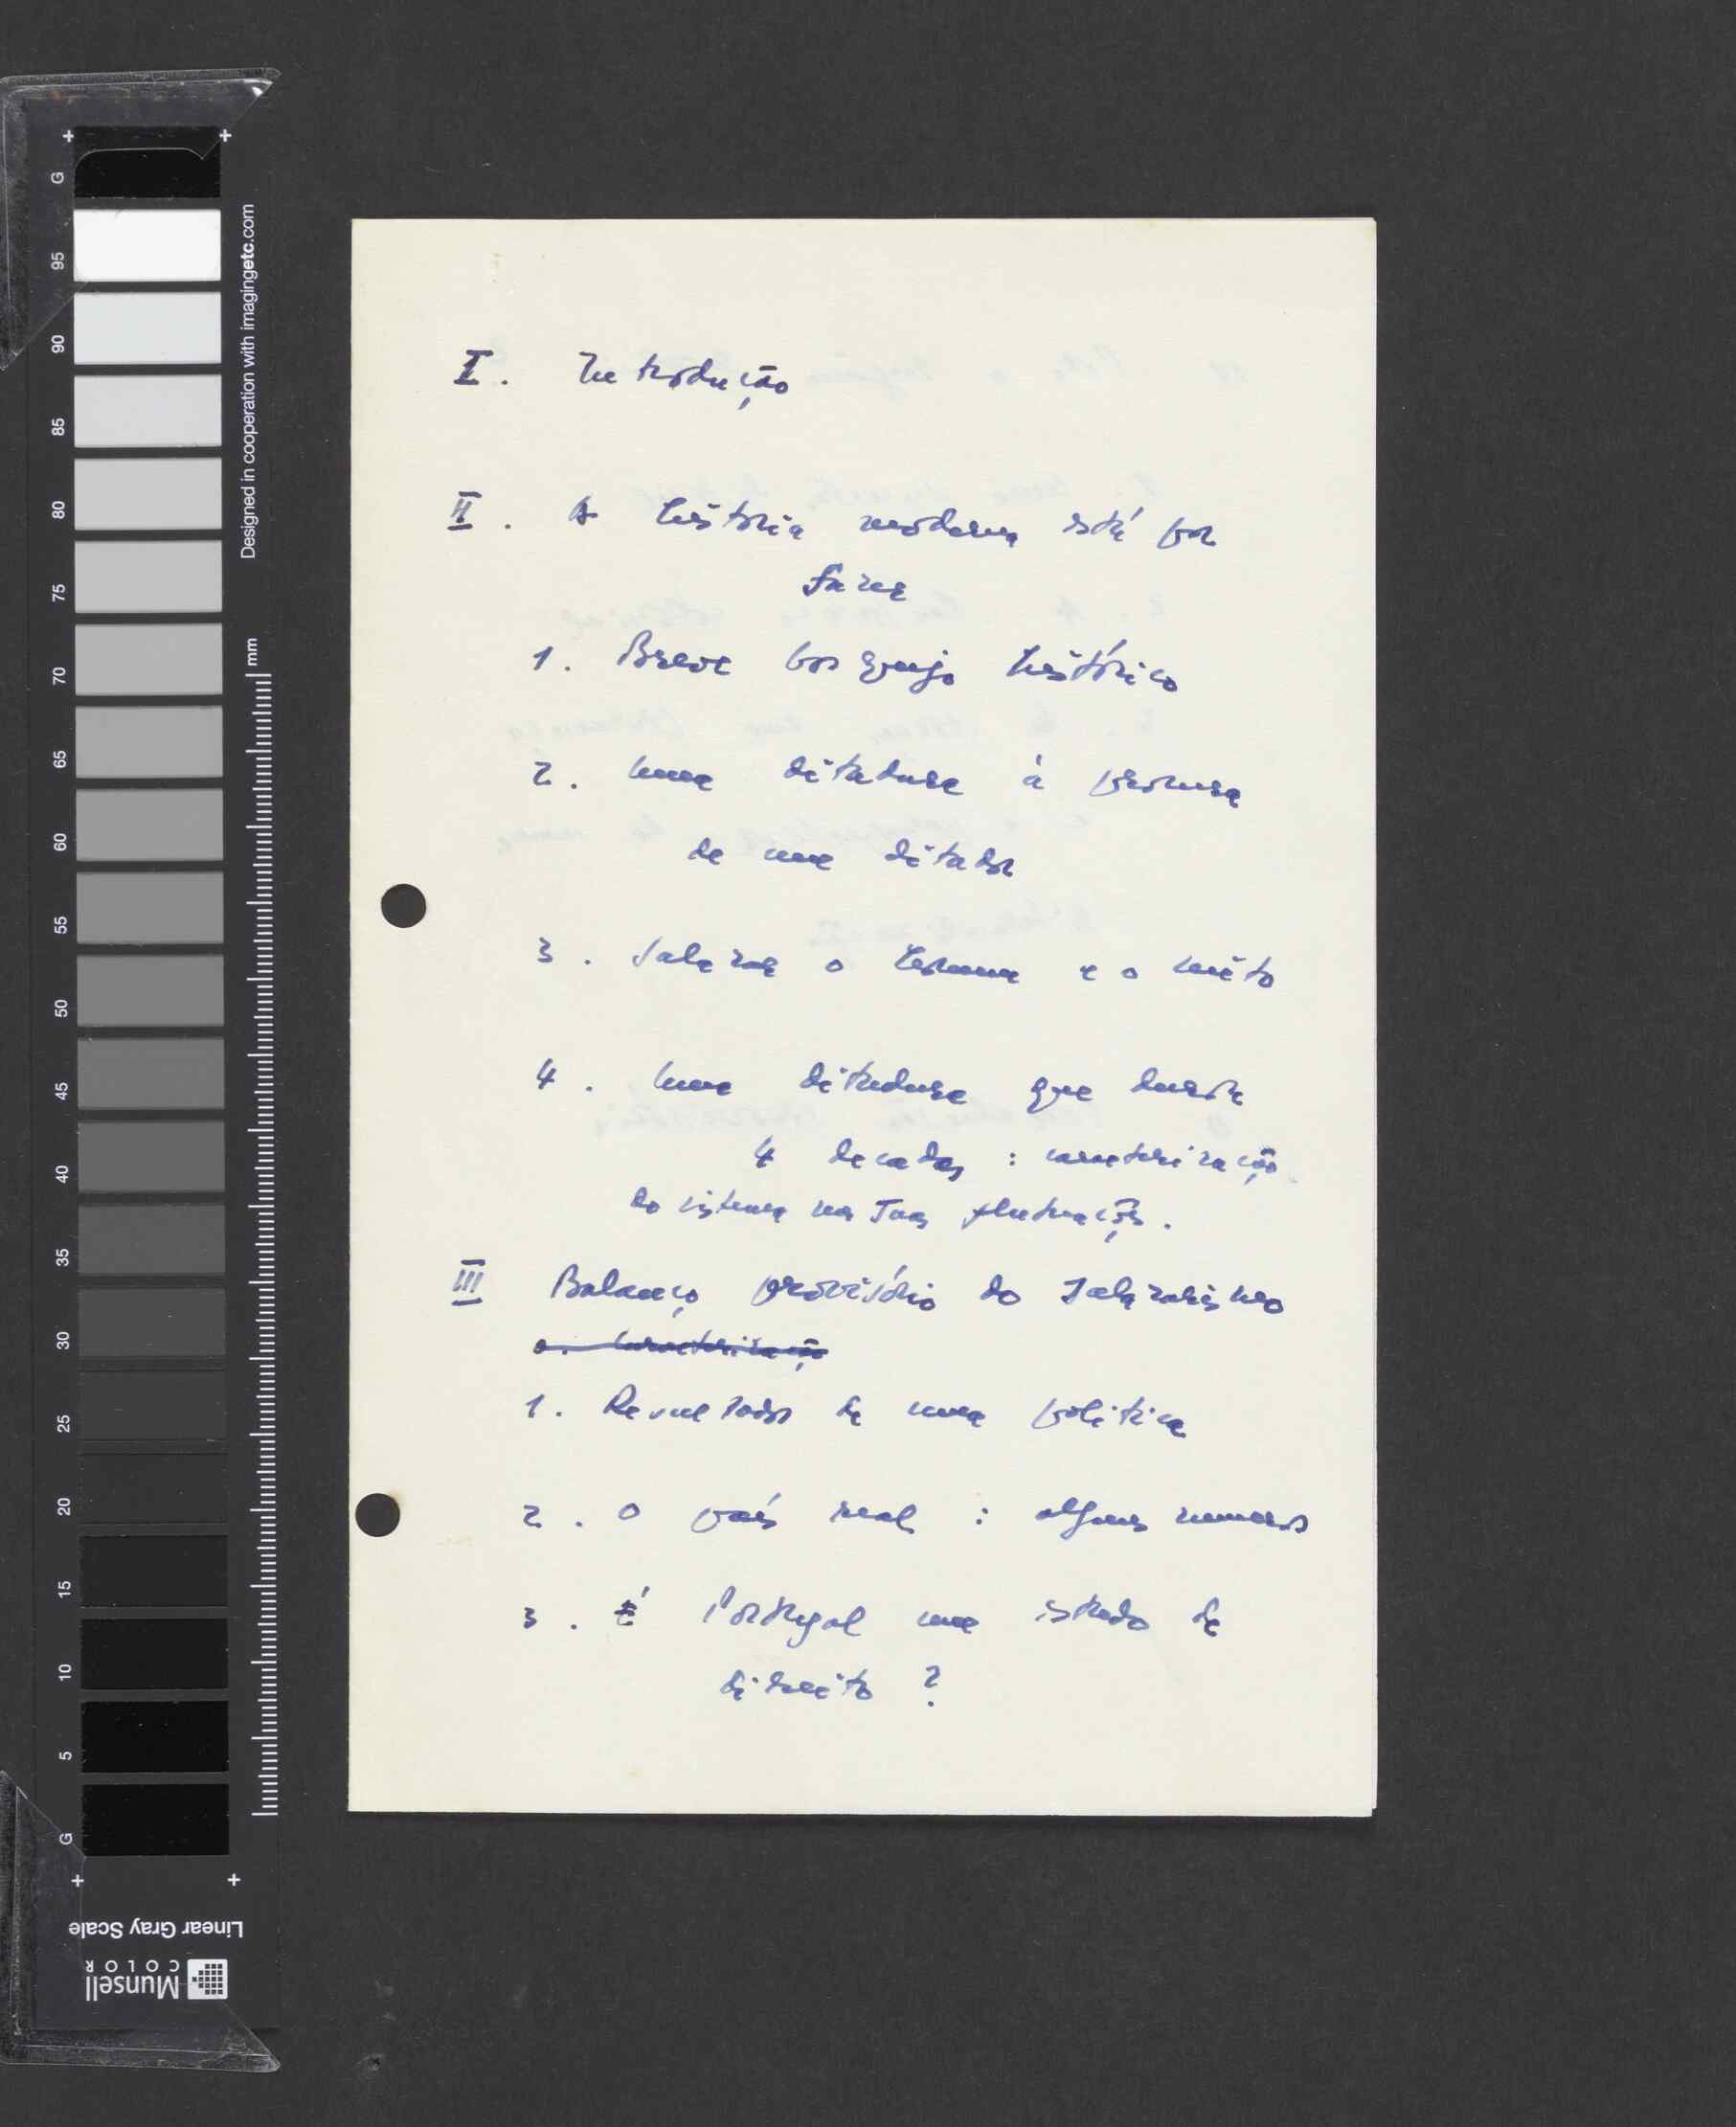 I. Introdução
II. A história moderna está por
fazer
1. Breve bosquejo histórico
2. Uma ditadura à procura
de um ditador
3. Salazar o homem e o mito
4. Uma ditadura que durou
4 decadas : caracterização
do sistema nas suas flutuações.
III Balanço provisório do Salazarismo
a. Caracterização
1. Resultados de uma politica
2. O país real : alguns numeros
3. É Portugal um estado de
direito ?
G
95
90
85
80
75
70
65
60
55
50
45
40
35
30
25
20
15
10
5
G
mm
Designed in cooperation with imagingetc.com
Linear Gray Scale
Munsell
COLOR